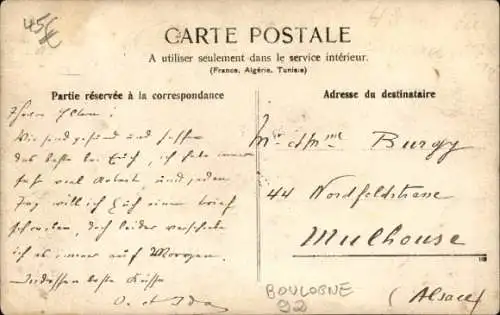 45€
CARTE POSTALE
A utiliser seulement dans le service intérieur.
(France, Algérie, Tunisie)
Partie réservée à la correspondance
Adresse du destinataire
Wir sind gesund und hoffen
das beste bei Euch, ich habe immer
sehr viel Arbeit und jeden
Tag will ich Euch einen Brief
schreiben, doch leider verschiebe
ich es immer auf Morgen.
Indessen beste Küsse
O. et Ida
Mr et Mme Burgy
44 Nordfeldstrasse
Mulhouse
(Alsace)
BOULOGNE
92